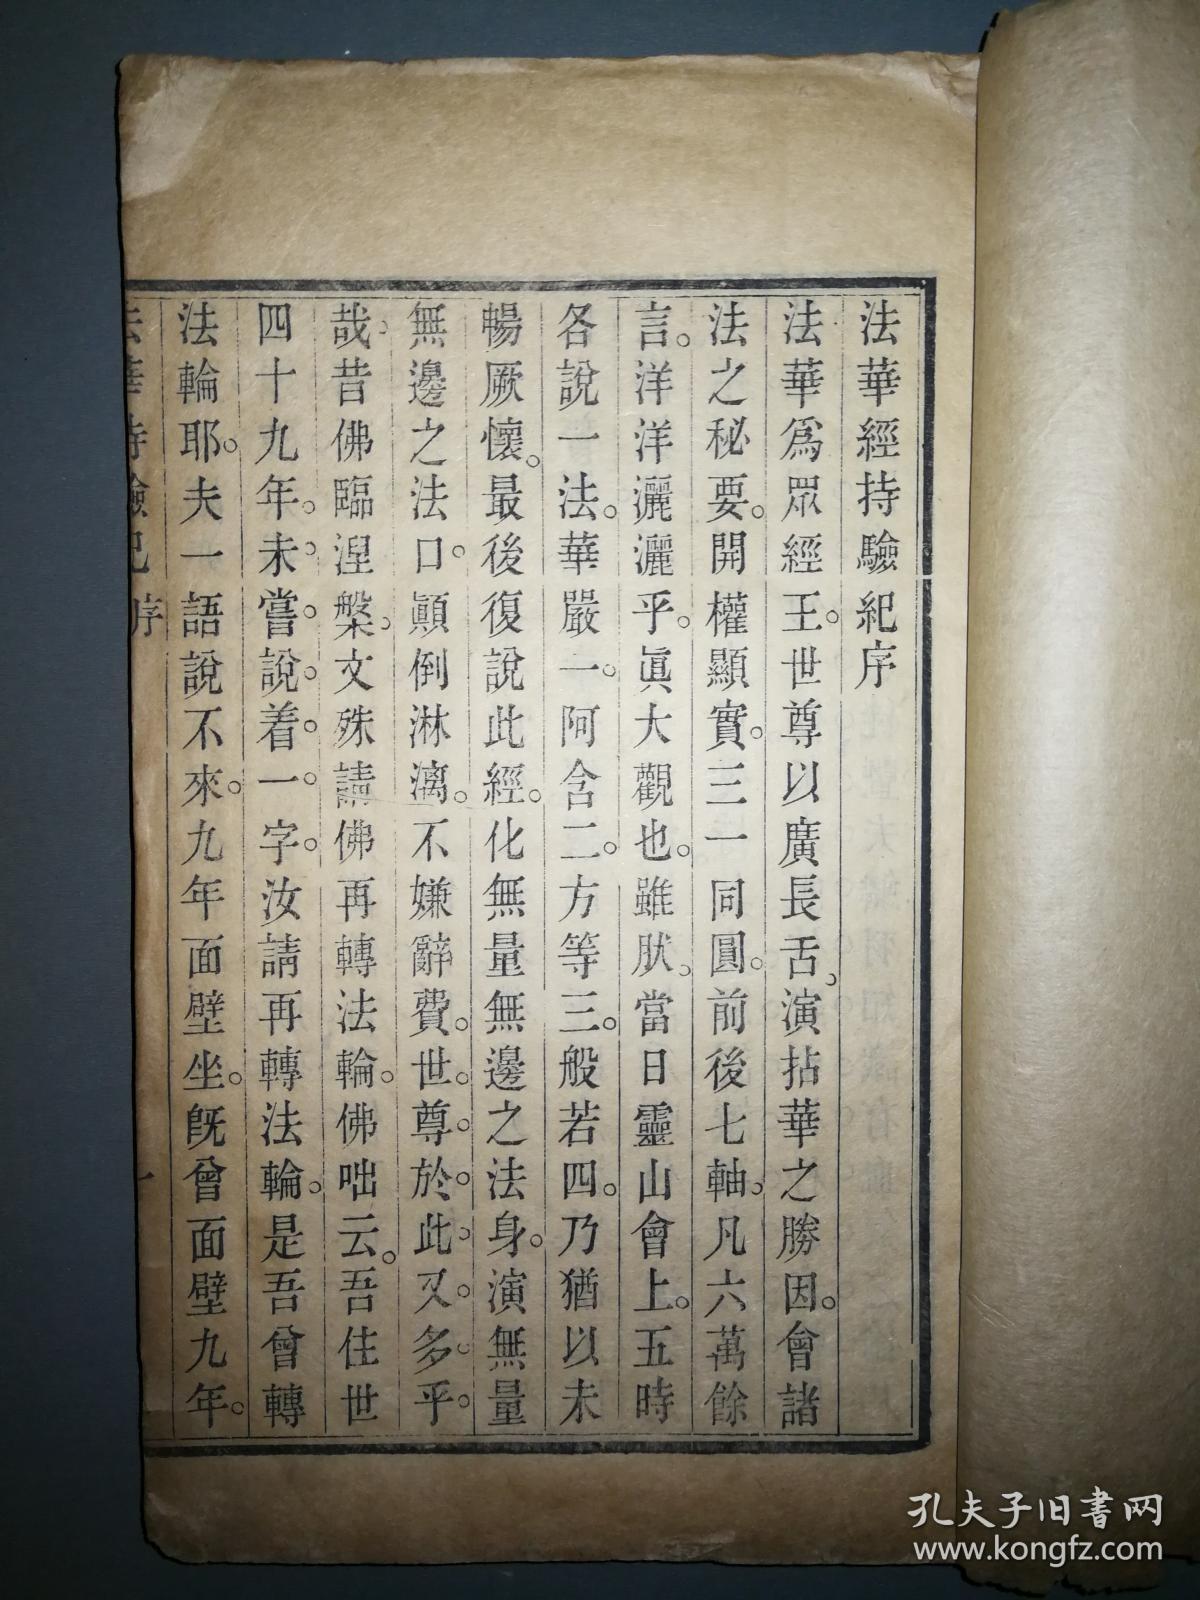 法華經持驗紀序
法華爲眾經王。世尊以廣長舌、演拈華之勝因。會諸
法之秘要。開權顯實。三一同圓。前後七軸。凡六萬餘
言。洋洋灑灑乎。眞大觀也。雖肰、當日靈山會上。五時
各說一法。華嚴一。阿含二。方等三。般若四。乃猶以未
暢厥懷。最後復說此經。化無量無邊之法身。演無量
無邊之法口。顚倒淋漓。不嫌辭費。世。尊。於。此。又。多。乎。
哉、昔佛臨涅槃。文殊請佛再轉法輪。佛咄云。吾住世
四十九年。未。嘗。說。着。一。字。汝請再轉法輪。是吾曾轉
法輪耶。夫一語說不來。九年面壁坐。旣曾面壁九年。
法華持驗紀 序 一
孔夫子旧书网
www.kongfz.com